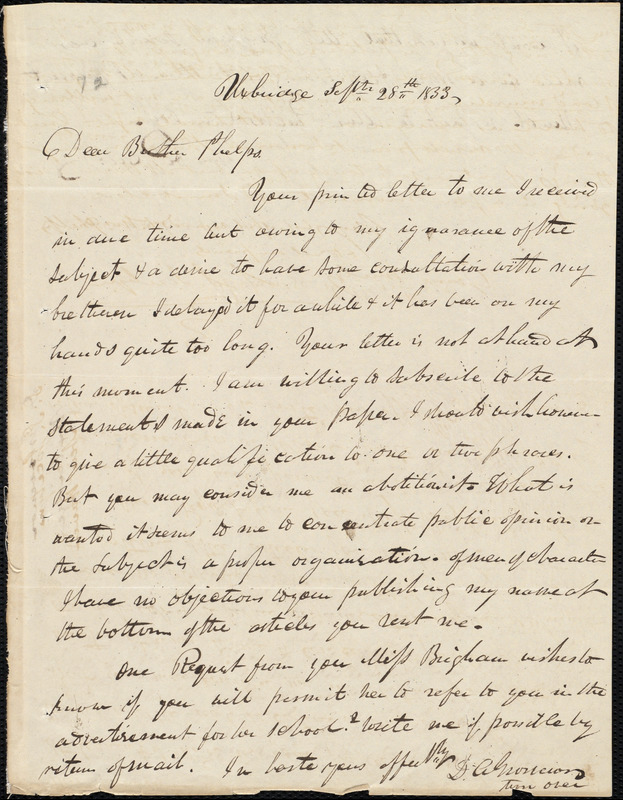 Uxbridge Septr. 28th 1833,
Dear Brother Phelps.
Your printed letter to me I received
in due time but owing to my ignorance of the
subject & a desire to have some consultation with my
bretheren I delayed it for awhile & it has been on my
hands quite too long. Your letter is not at hand at
this moment. I am willing to subscribe to the
statements made in your paper. I should wish however
to give a little qualification to one or two phrases.
But you may consider me an abolitionist. What is
wanted it seems to me to concentrate public opinion on
the subject is a proper organization of men of character
I have no objections to your publishing my name at
the bottom of the articles you sent me.
One Request from you Miss Brigham wishes to
know if you will permit her to refer to you in the
advertisement for her school? Write me if possible by
return of mail. In haste yours affectly
D. Grosvenor
turn over